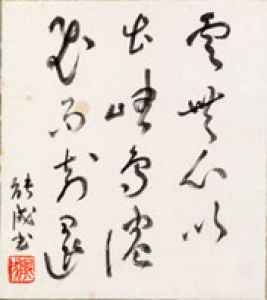 雲無心以
出岫鳥倦
飛而知還